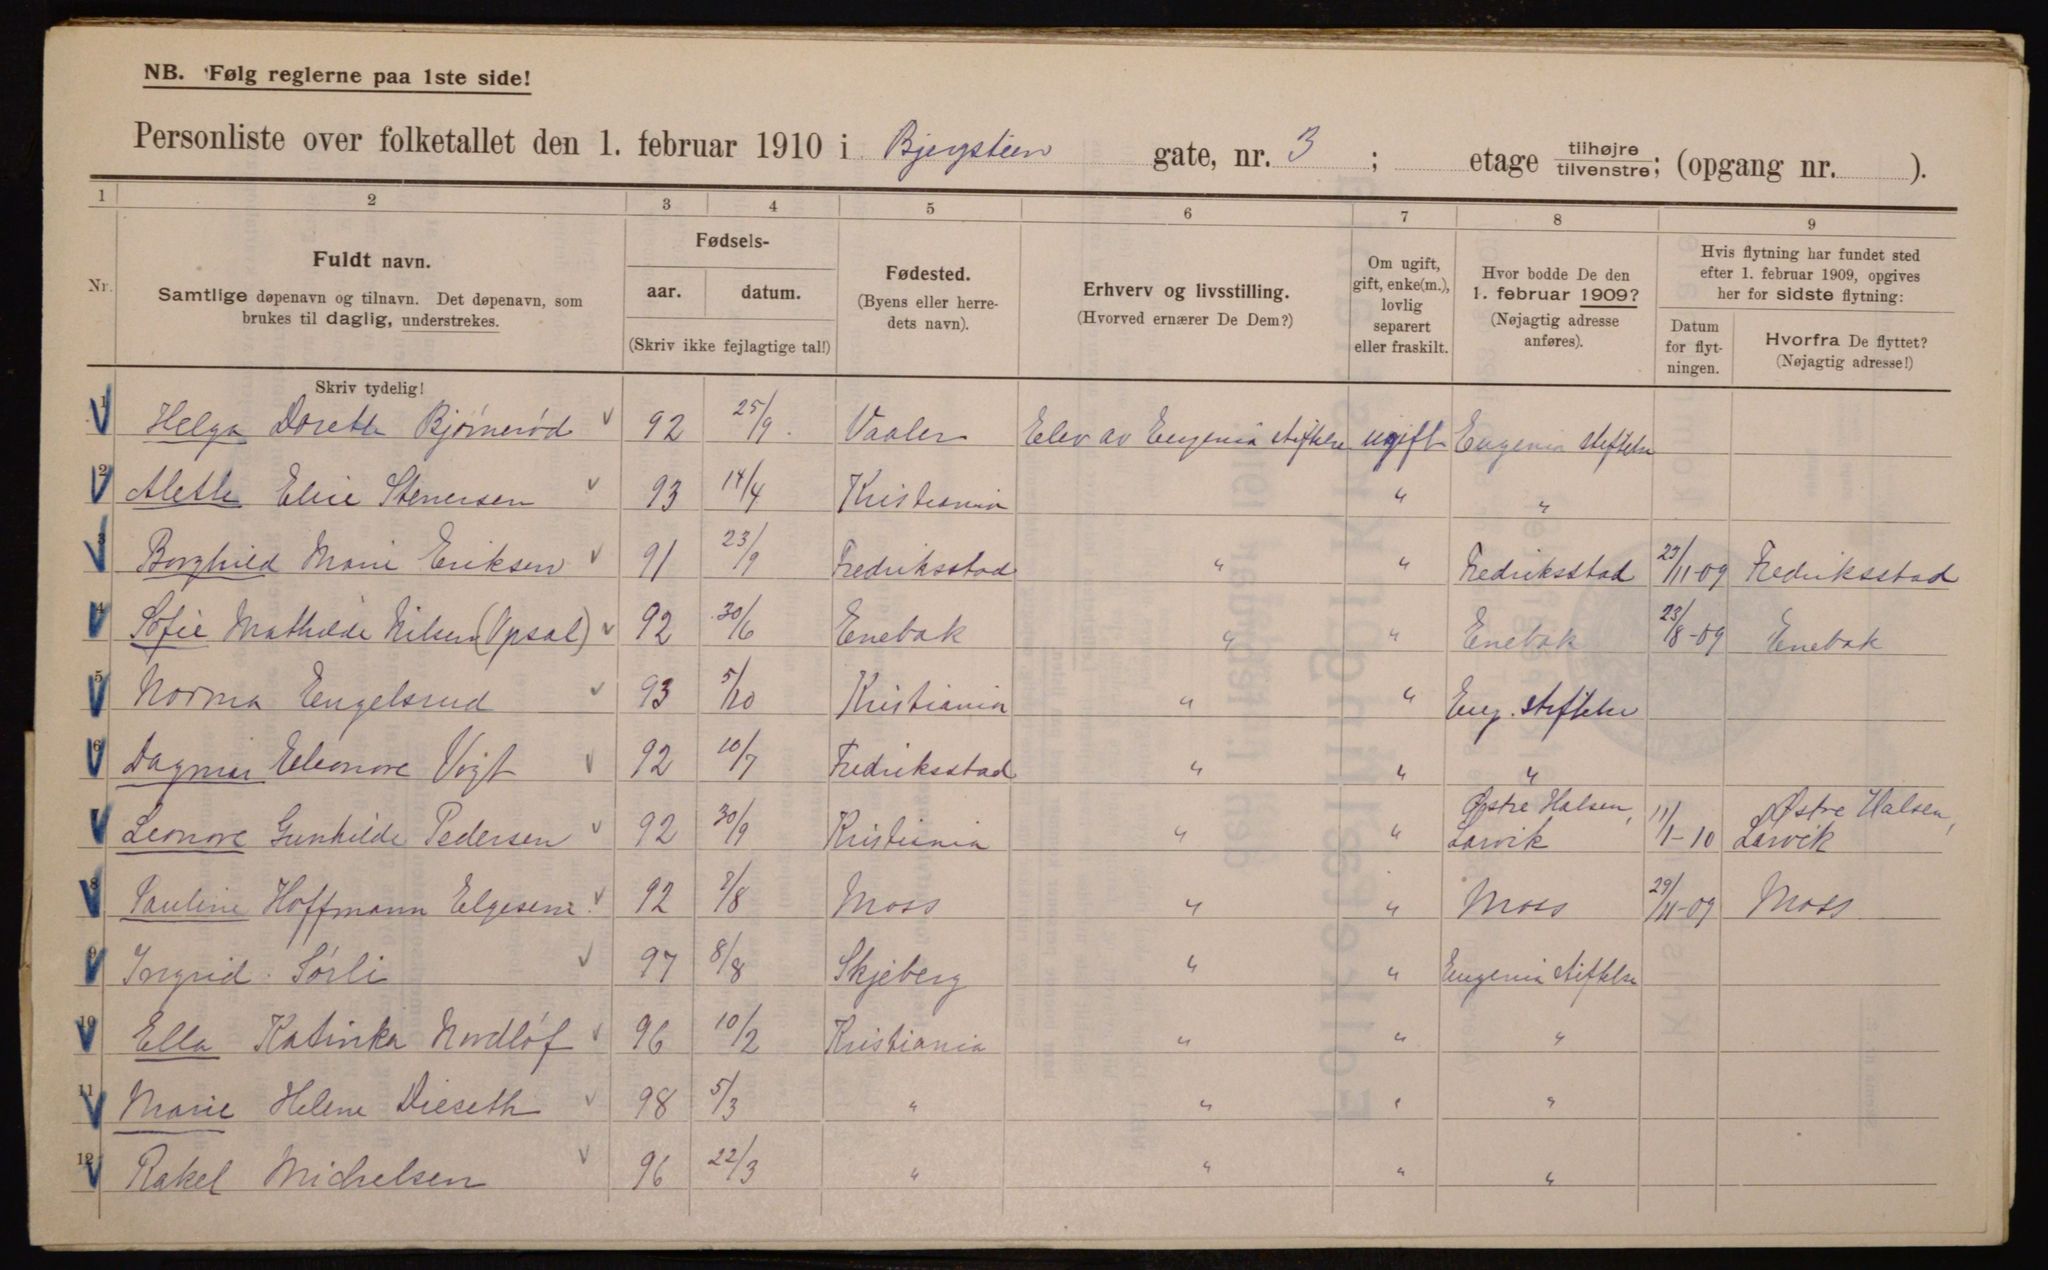 NB. Følg reglerne paa 1ste side!
Personliste over folketallet den 1. februar 1910 i Bjergstien gate, nr. 3 ; etage tilhøjre tilvenstre; (opgang nr. ).
1 2 3 4 5 6 7 8 9
Nr.
Fuldt navn.
Samtlige døpenavn og tilnavn. Det døpenavn, som
brukes til daglig, understrekes.
Skriv tydelig!
Fødsels-
aar. datum.
(Skriv ikke fejlagtige tal!)
Fødested.
(Byens eller herre-
dets navn).
Erhverv og livsstilling.
(Hvorved ernærer De Dem?)
Om ugift,
gift, enke(m.),
lovlig
separert
eller fraskilt.
Hvor bodde De den
1. februar 1909?
(Nøjagtig adresse
anføres).
Hvis flytning har fundet sted
efter 1. februar 1909, opgives
her for sidste flytning:
Datum
for flyt-
ningen.
Hvorfra De flyttet?
(Nøjagtig adresse!)
1 Helga Dorethe Bjørnerød 92 25/9 Vaaler Elev av Eugenia stiftelse ugift Eugenia stiftelse
2 Alethe Elise Stenersen 93 14/4 Kristiania " "
3 Borghild Marie Eriksen 91 23/9 Fredriksstad " " Fredriksstad 23/11-09 Fredriksstad
4 Sofie Mathilde Nilsen (Opsal) 92 30/6 Enebak " " Enebak 23/8-09 Enebak
5 Norma Engelsrud 93 5/10 Kristiania " " Eug. stiftelse
6 Dagmar Eleonore Vogt 92 10/7 Fredriksstad " " "
7 Leonore Gunhilde Pedersen 92 30/9 Kristiania " " Østre Halsen, Larvik 11/1-10 Østre Halsen, Larvik
8 Pauline Hoffmann Elgesem 92 /8 Moss " " Moss 29/11-09 Moss
9 Ingrid Sørli 97 8/8 Skjeberg " " Eugenia stiftelse
10 Ella Katinka Nordløf 96 10/2 Kristiania " " "
11 Marie Helene Dieseth 98 5/3 " " " "
12 Rakel Michelsen 96 22/3 " " " "